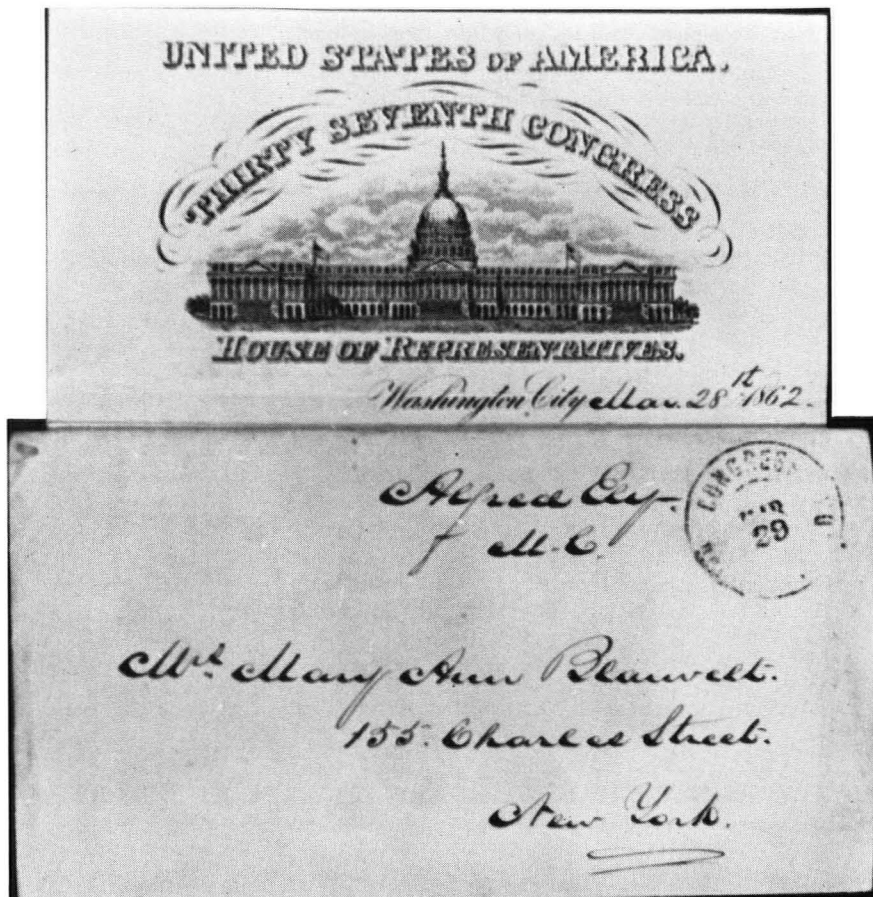 UNITED STATES OF AMERICA.
THIRTY SEVENTH CONGRESS
HOUSE OF REPRESENTATIVES.
Washington City Mar. 28st 1862.
Alfred Ely
M.C.
CONGRESS
MAR
29
Mrs Mary Ann Blauvelt.
155. Charles Street.
New York.